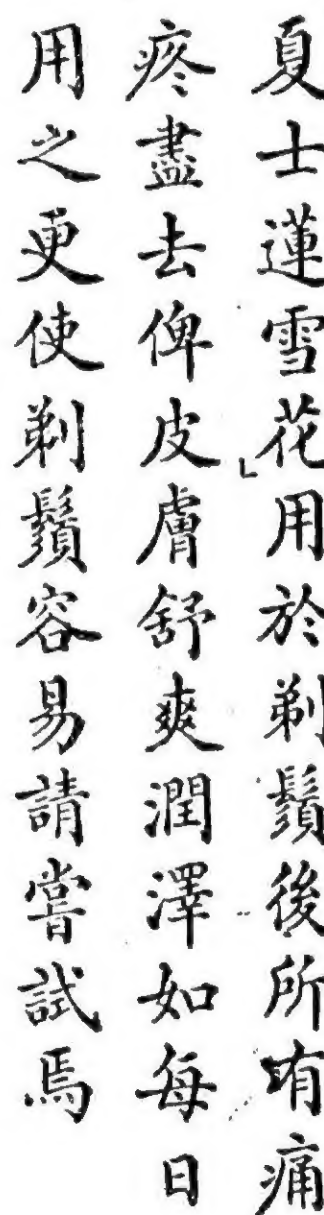 夏士蓮雪花」用於剃鬚後所有痛
疼盡去俾皮膚舒爽潤澤如每日
用之更使剃鬚容易請嘗試焉